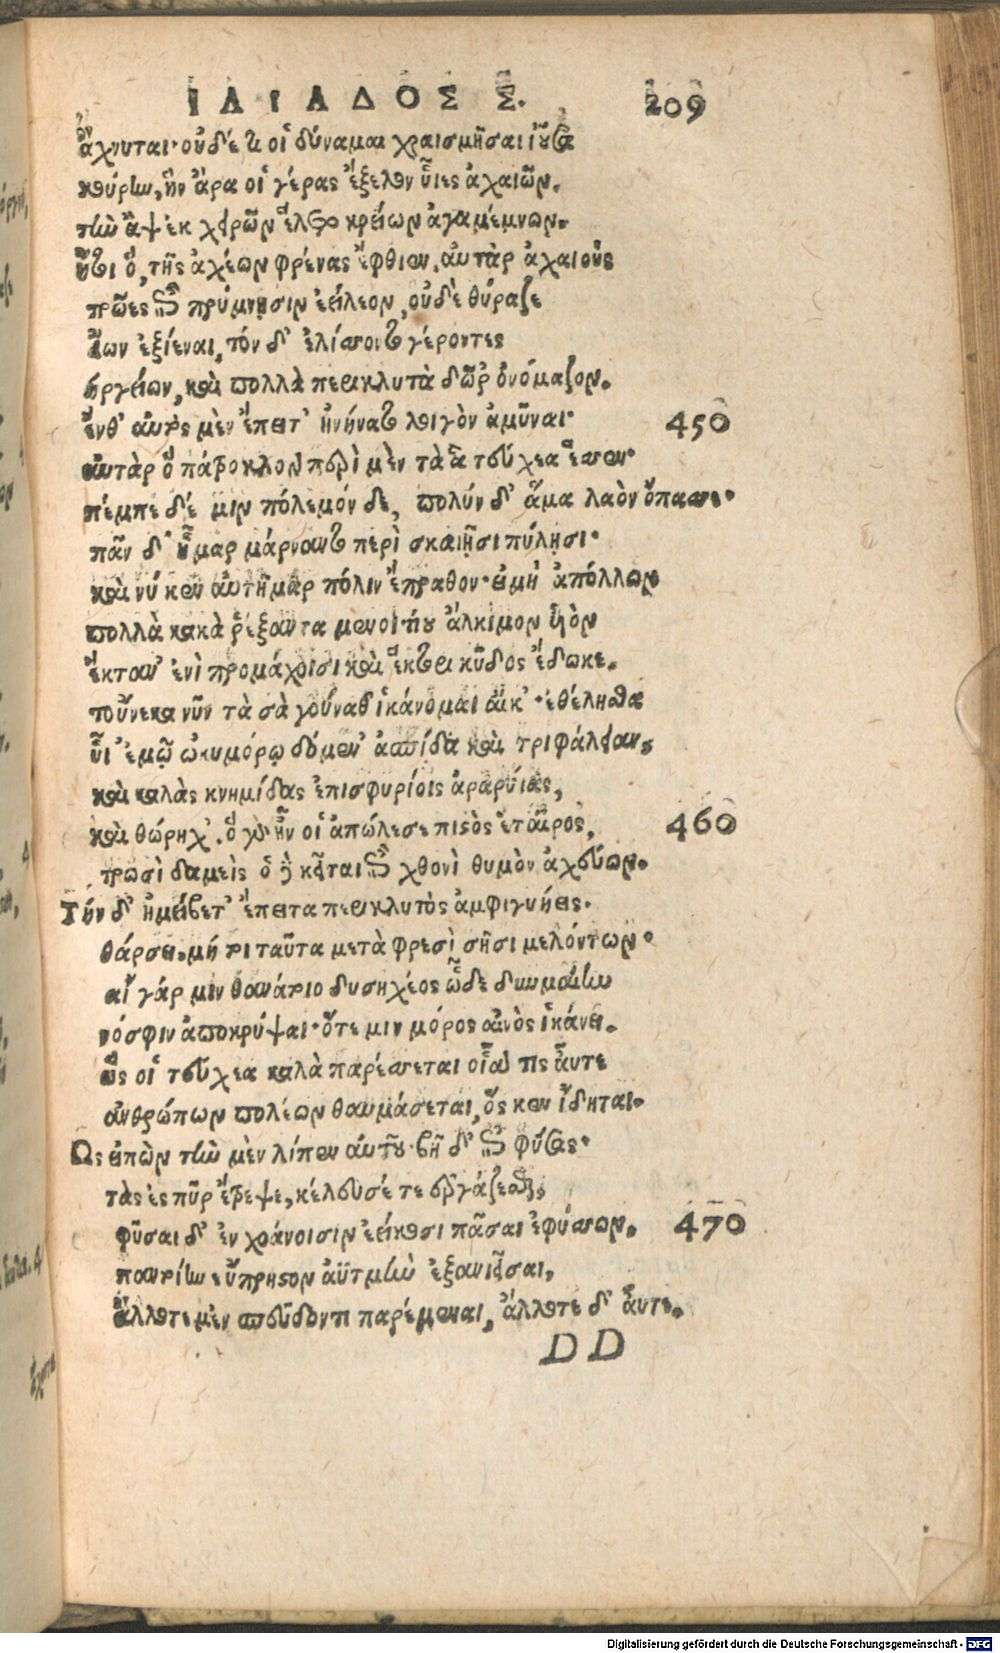 ΙΛΙΑΔΟΣ Σ. 209
ἄχνυται· οὐδέ τι οἱ δύναμαι χραισμῆσαι ἰοῦσα
κούρην, ἣν ἄρα οἱ γέρας ἔξελον υἷες ἀχαιῶν.
τὴν ἂψ ἐκ χειρῶν ἕλετο κρείων ἀγαμέμνων.
ἤτοι ὅ, τῆς ἀχέων φρένας ἔφθιεν. αὐτὰρ ἀχαιοὺς
τρῶες ἐπὶ πρύμνῃσιν ἐείλεον, οὐδὲ θύραζε
εἴων ἐξιέναι, τόν δ' ἐλίσσοντο γέροντες
ἀργείων, καὶ πολλὰ περικλυτὰ δῶρ' ὀνόμαζον.
ἔνθ' αὐτὸς μὲν ἔπειτ' ἠνήνατο λοιγὸν ἀμῦναι· 450
αὐτὰρ ὃ πάτροκλον περὶ μὲν τὰ ἃ τεύχεα ἕσσεν·
πέμπε δέ μιν πόλεμόν δε, πολύν δ' ἅμα λαὸν ὄπασσε.
πᾶν δ' ἦμαρ μάρναντο περὶ σκαιῇσι πύλῃσι·
καὶ νύ κεν αὐτῆμαρ πόλιν ἔπραθον· εἰ μὴ ἀπόλλων
πολλὰ κακὰ ῥέξαντα μενοιτίου ἄλκιμον υἱὸν
ἔκταν' ἐνὶ προμάχοισι καὶ ἕκτορι κῦδος ἔδωκε.
τοὔνεκα νῦν τὰ σὰ γούναθ' ἱκάνομαι αἴκ' ἐθέλησθα
υἷι' ἐμῷ ὠκυμόρῳ δόμεν' ἀσπίδα καὶ τριφάλειαν,
καὶ καλὰς κνημίδας ἐπισφυρίοις ἀραρυίας,
καὶ θώρηχ'. ὃ γὰρ ἦν οἱ ἀπώλεσε πιστὸς ἑταῖρος, 460
τρωσὶ δαμεὶς ὁ δὲ κεῖται ἐπὶ χθονὶ θυμὸν ἀχεύων.
Τήν δ' ἠμείβετ' ἔπειτα περικλυτὸς ἀμφιγυήεις.
θάρσει. μή τι ταῦτα μετὰ φρεσὶ σῇσι μελόντων·
αἲ γάρ μιν θανάτοιο δυσηχέος ὧδε δυναίμην
νόσφιν ἀποκρύψαι· ὅτε μιν μόρος αἰνὸς ἱκάνει.
ὥς οἱ τεύχεα καλὰ παρέσσεται οἷά τις αὖτε
ἀνθρώπων πολέων θαυμάσεται, ὅς κεν ἴδηται.
Ως εἰπὼν τὴν μὲν λίπεν αὐτοῦ· βῆ δ' ἐπὶ φύσας·
τὰς ἐς πῦρ ἔτρεψε, κέλευσέ τε ἐργάζεσθαι,
φῦσαι δ' ἐν χοάνοισιν ἐείκοσι πᾶσαι ἐφύσσων. 470
παντοίην εὔπρηστον ἀϋτμὴν ἐξανιεῖσαι,
ἄλλοτε μὲν σπεύδοντι παρέμεναι, ἄλλοτε δ' αὖτε.
DD
Digitalisierung gefördert durch die Deutsche Forschungsgemeinschaft - DFG